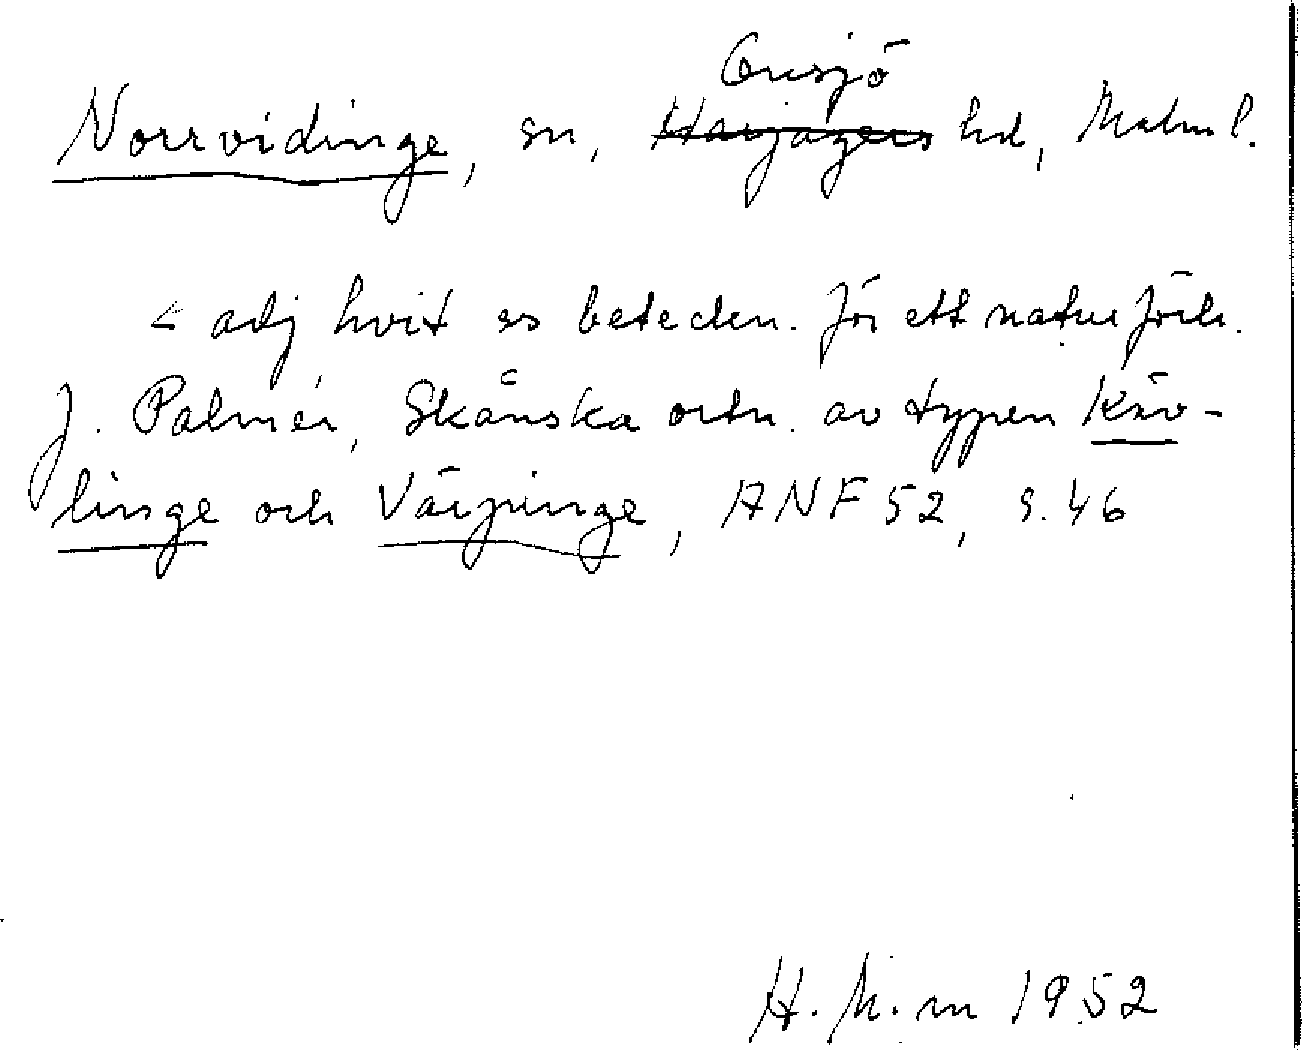 Onsjö
Norrvidinge, sn, Harjagers hd, Malm l.
< adj hvit ss beteckn. för ett naturförh.
J. Palmér, Skånska ortn. av typen Käv-
linge och Värpinge, ANF 52, s. 46
H. M-m 1952